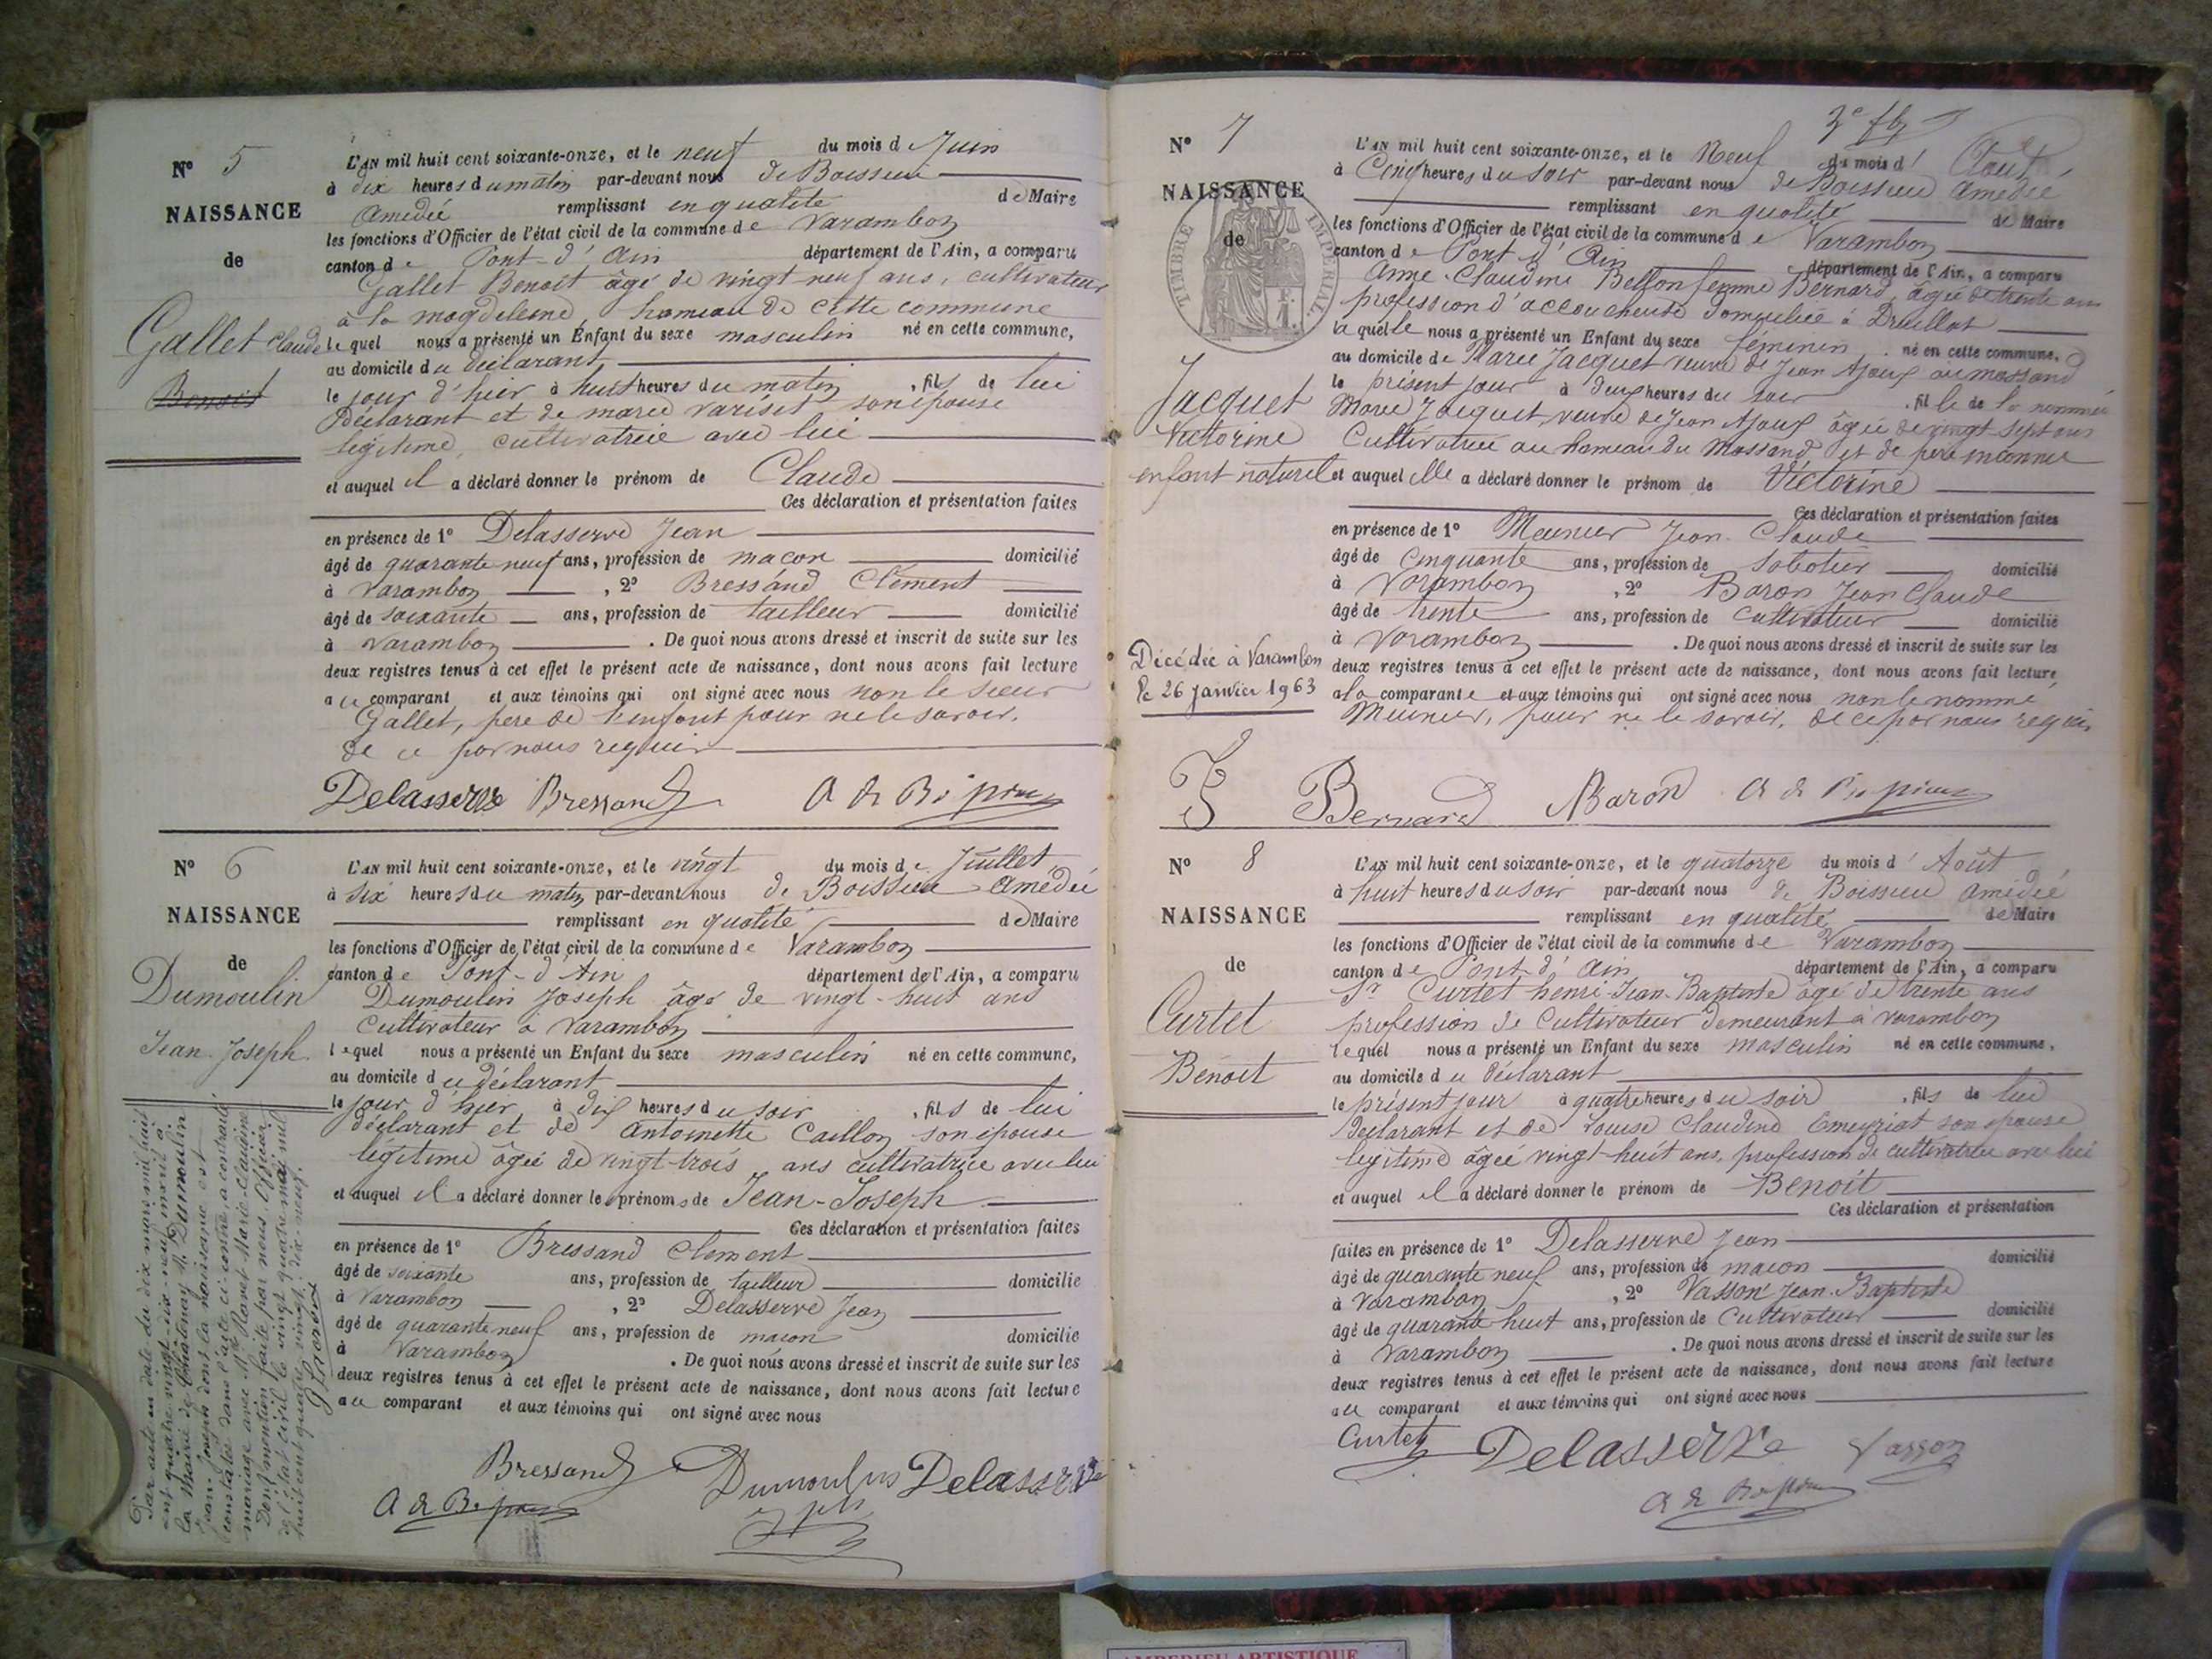 N° 5
NAISSANCE
de
Gallet Claude
Benoit
L'AN mil huit cent soixante-onze, et le neuf du mois de Juin
à dix heures du matin par-devant nous de Boissieu
Amédée remplissant en qualité de Maire
les fonctions d'Officier de l'état civil de la commune de Varambon
canton de Pont-d'Ain département de l'Ain, a comparu
Gallet Benoit âgé de vingt neuf ans, cultivateur
à la magdeleine, hameau de cette commune
lequel nous a présenté un Enfant du sexe masculin né en cette commune,
au domicile du déclarant
le jour d'hier à huit heures du matin, fils de lui
Déclarant et de marie variset son épouse
légitime, cultivatrice avec lui
et auquel il a déclaré donner le prénom de Claude
Ces déclaration et présentation faites
en présence de 1° Delasserve Jean
âgé de quarante neuf ans, profession de maçon domicilié
à Varambon, 2° Bressand Clément
âgé de soixante ans, profession de tailleur domicilié
à Varambon. De quoi nous avons dressé et inscrit de suite sur les
deux registres tenus à cet effet le présent acte de naissance, dont nous avons fait lecture
au comparant et aux témoins qui ont signé avec nous non le sieur
Gallet, père de l'enfant pour ne le savoir.
de ce par nous requis
Delasserve Bressand
N° 6
NAISSANCE
de
Dumoulin
Jean Joseph
L'AN mil huit cent soixante-onze, et le vingt du mois de Juillet
à six heures du matin par-devant nous de Boissieu Amédée
remplissant en qualité de Maire
les fonctions d'Officier de l'état civil de la commune de Varambon
canton de Pont-d'Ain département de l'Ain, a comparu
Dumoulin Joseph âgé de vingt-huit ans
Cultivateur à Varambon
lequel nous a présenté un Enfant du sexe masculin né en cette commune,
au domicile du déclarant
le jour d'hier, à dix heures du soir, fils de lui
déclarant et de Antoinette Caillon son épouse
légitime âgée de vingt-trois ans cultivatrice avec lui
et auquel il a déclaré donner le prénoms de Jean-Joseph
Ces déclaration et présentation faites
en présence de 1° Bressand Clement
âgé de soixante ans, profession de tailleur domicilié
à Varambon, 2° Delasserve Jean
âgé de quarante neuf ans, profession de maçon domicilié
à Varambon. De quoi nous avons dressé et inscrit de suite sur les
deux registres tenus à cet effet le présent acte de naissance, dont nous avons fait lecture
au comparant et aux témoins qui ont signé avec nous
Bressand Dumoulin Delasserve
Par acte en date du dix mars mil huit
cent quatre vingt-dix-neuf inscrit à
la Mairie de Châtenay M. Dumoulin
Jean Joseph dont la naissance est
constatée dans l'acte ci-contre, a contracté
mariage avec Mlle Ravet Marie-Claudine
Dont mention faite par nous, Officier
de l'état civil le vingt quatre mai mil
huit cent quatre vingt-dix-neuf.
N° 7
NAISSANCE
de
TIMBRE IMPÉRIAL
Jacquet
Victorine
enfant naturel
Décédée à Varambon
le 26 janvier 1963
L'AN mil huit cent soixante-onze, et le Neuf du mois d'Aout
à Cinq heures du soir par-devant nous de Boissieu Amédée
remplissant en qualité de Maire
les fonctions d'Officier de l'état civil de la commune de Varambon
canton de Pont d'Ain département de l'Ain, a comparu
Anne-Claudine Bellon femme Bernard, âgée de trente ans
profession d'accoucheuse domiciliée à Druillat
laquelle nous a présenté un Enfant du sexe féminin né en cette commune,
au domicile de Marie Jacquet veuve de Jean Ajoux au massand
le présent jour à deux heures du soir, fille de la nommée
Marie Jacquet, veuve de Jean Ajoux âgée de vingt sept ans
Cultivatrice au hameau du Massand et de père inconnu
et auquel elle a déclaré donner le prénom de Victorine
Ces déclaration et présentation faites
en présence de 1° Meunier Jean-Claude
âgé de Cinquante ans, profession de Sabotier domicilié
à Varambon, 2° Baron Jean Claude
âgé de trente ans, profession de Cultivateur domicilié
à Varambon. De quoi nous avons dressé et inscrit de suite sur les
deux registres tenus à cet effet le présent acte de naissance, dont nous avons fait lecture
à la comparante et aux témoins qui ont signé avec nous non le nommé
Meunier, pour ne le savoir, de ce par nous requis
Bernard Baron
N° 8
NAISSANCE
de
Curtet
Benoit
L'AN mil huit cent soixante-onze, et le quatorze du mois d'Août
à huit heures du soir par-devant nous de Boissieu Amédée
remplissant en qualité de Maire
les fonctions d'Officier de l'état civil de la commune de Varambon
canton de Pont-d'Ain département de l'Ain, a comparu
Sr Curtet henri-Jean-Baptiste âgé de trente ans
profession de Cultivateur demeurant à Varambon
lequel nous a présenté un Enfant du sexe masculin né en cette commune,
au domicile du déclarant
le présent jour à quatre heures du soir, fils de lui
déclarant et de Louise Claudine Emeyriat son épouse
légitime âgée vingt-huit ans, profession de cultivatrice avec lui
et auquel il a déclaré donner le prénom de Benoît
Ces déclaration et présentation
faites en présence de 1° Delasserve Jean
âgé de quarante neuf ans, profession de maçon domicilié
à Varambon, 2° Vasson Jean-Baptiste
âgé de quarante-huit ans, profession de Cultivateur domicilié
à Varambon. De quoi nous avons dressé et inscrit de suite sur les
deux registres tenus à cet effet le présent acte de naissance, dont nous avons fait lecture
au comparant et aux témoins qui ont signé avec nous
Curtet Delasserve Vasson
AMBERIEU ARTISTIQUE